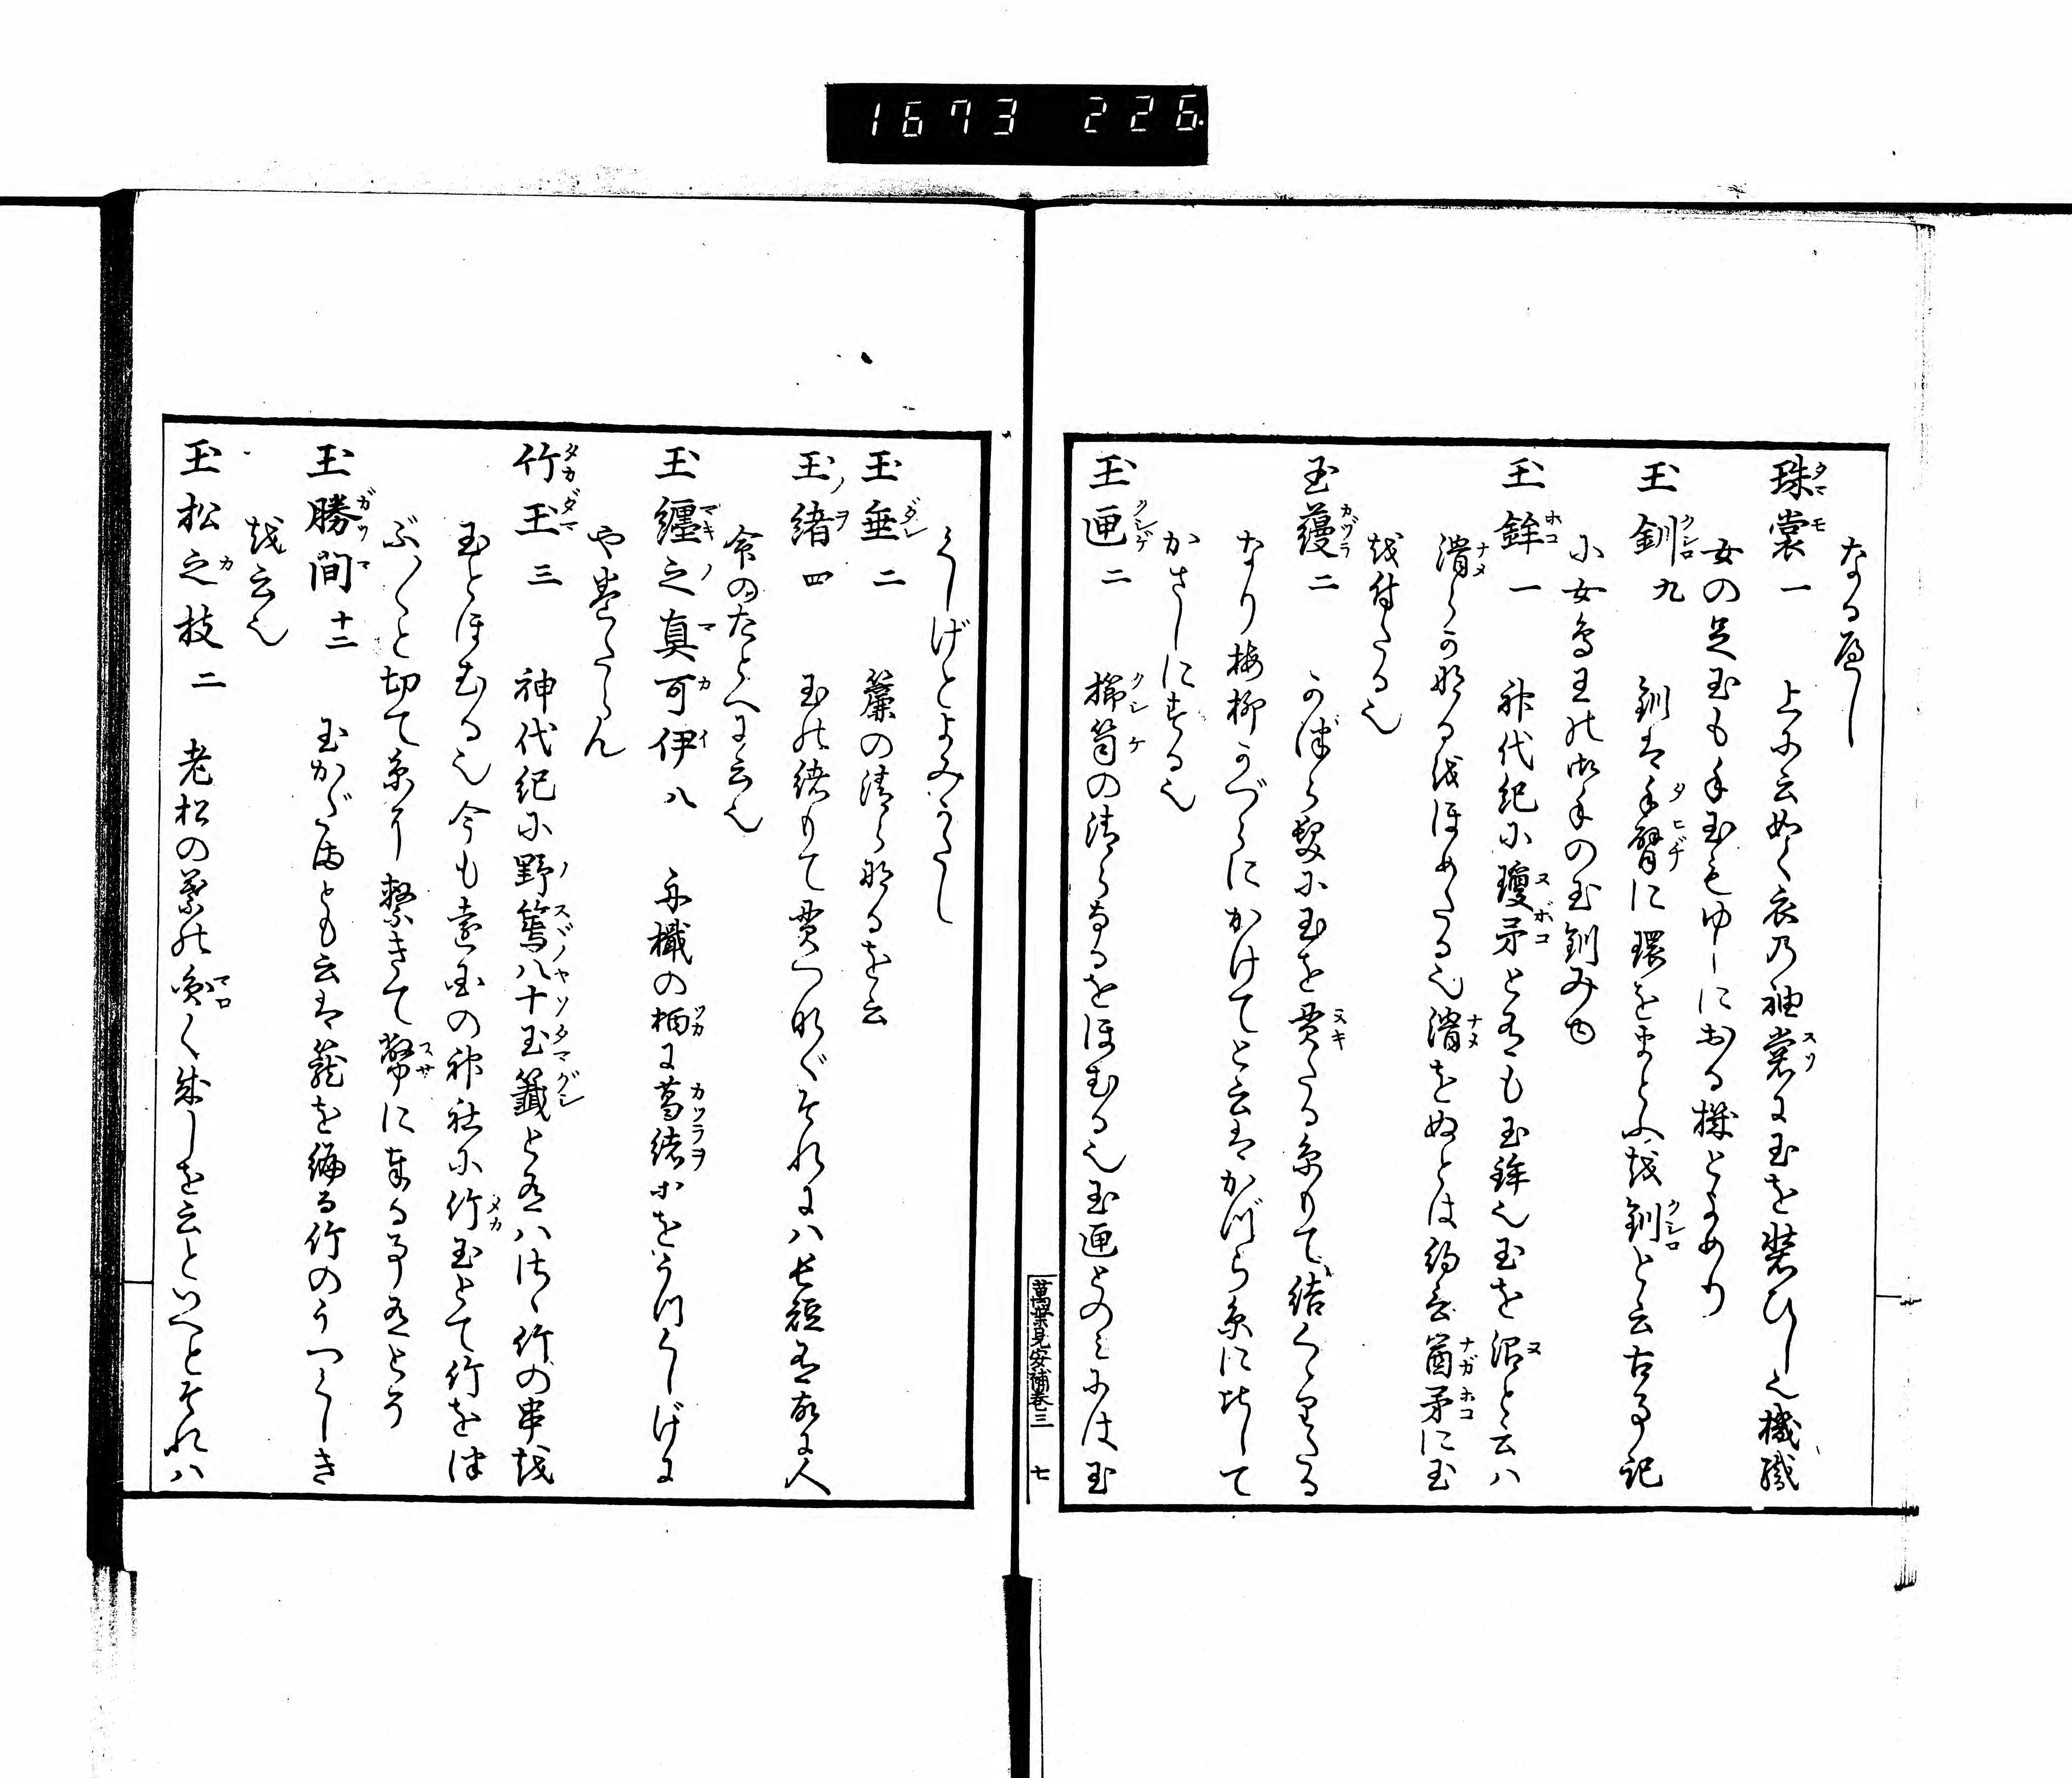 1673 226
なるべし
珠裳一 上に云如く衣乃袖裳に玉を装ひし也機織
女の足玉も手玉もゆらにおる機とよめり
玉釧九 釧は手臂に環をまとふを釧と云古事記
に女鳥王の御手の玉釧みゆ
玉鉾一 神代紀に瓊矛と有も玉鉾也玉を沼と云ハ
滑らかなるをほめたる也滑をぬとは
矛に玉
を付たる也
玉蘰二 かづら髪に玉を貫たる糸りて結
なり梅柳かづらにかけてと云はかづら糸に
して
かさしにする也
玉匣二 櫛笥の清らなるをほむる也玉匣とのみには玉
萬葉見安補巻三 七
くしげとよみがたし
玉垂二 簾の清らなるを云
玉緒四 玉の緒りて貫つなぐそれにハ長短有故に人
命のたとへに云也
玉纏之真可伊八 舟檝の柄に葛緒をうつくしげに
や巻たらん
竹玉三 神代紀に野篶八十玉籤と有ハ
竹の串を
玉とほむる也今も遠国の神社に竹玉とて竹を
ぶつ〱と切て糸に繋きて幣に
する事有とぞ
玉勝間十二 玉かだまとも云は籠を編る竹のうつくしき
を云也
玉松之枝二 老松の葉の
く
しを云といへとそれハ